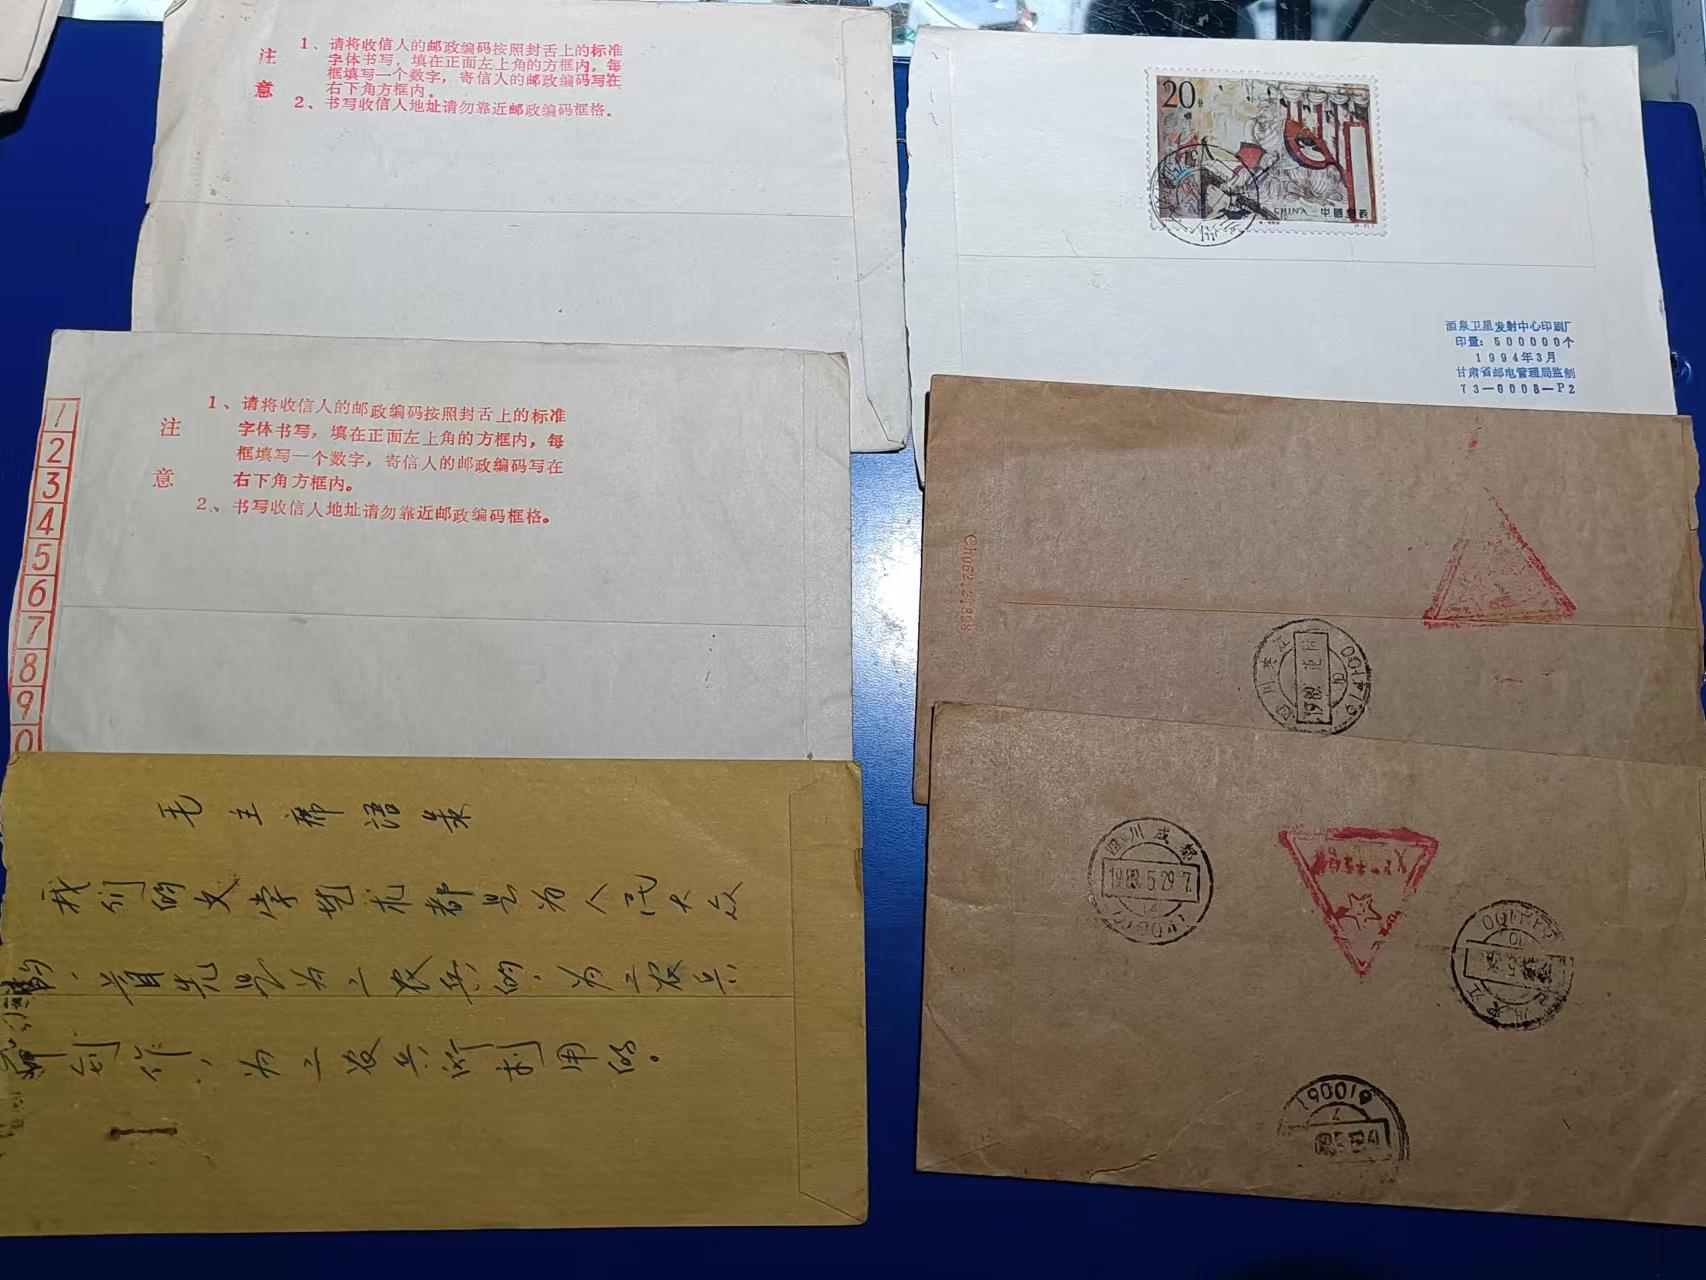 注意
1、请将收信人的邮政编码按照封舌上的标准
字体书写，填在正面左上角的方框内，每
框填写一个数字，寄信人的邮政编码写在
右下角方框内。
2、书写收信人地址请勿靠近邮政编码框格。
20分
CHINA 中国邮政
酒泉卫星发射中心印刷厂
印量：500000个
1994年3月
甘肃省邮电管理局监制
73-0008-P2
1
2
3
4
5
6
7
8
9
0
注意
1、请将收信人的邮政编码按照封舌上的标准
字体书写，填在正面左上角的方框内，每
框填写一个数字，寄信人的邮政编码写在
右下角方框内。
2、书写收信人地址请勿靠近邮政编码框格。
四川夹江
毛主席语录
我们的文学艺术都是为人民大众
的，首先是为工农兵的，为工农兵
而创作，为工农兵所利用的。
四川成都
5.29.7
610061